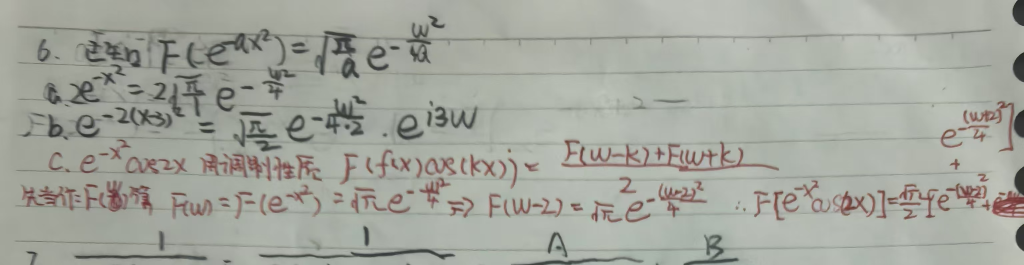 6. 已知 F(e^{-ax²}) = √(π/a) e^{-w²/4a}
a. 2e^{-x²} = 2√(π/1) e^{-w²/4}
b. e^{-2(x-3)²} = √(π/2) e^{-w²/4·2} · e^{i3w}
c. e^{-x²}cos2x 用调制性质 F(f(x)cos(kx)) = (F(w-k)+F(w+k))/2
先当作F( )算 F(w) = F(e^{-x²}) = √π e^{-w²/4} ⇒ F(w-2) = √π e^{-(w-2)²/4} ∴ F[e^{-x²}cos(2x)] = √π/2 [e^{-(w-2)²/4} + e^{-(w+2)²/4}]
7. 1 = 1 A B